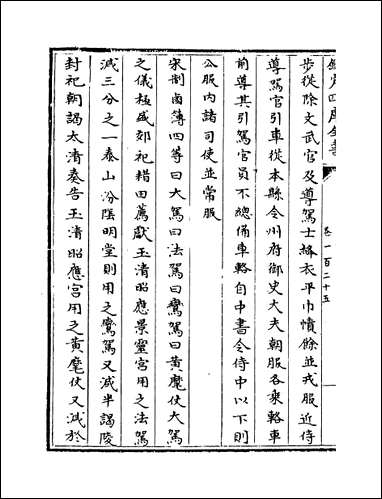 欽定四庫全書
卷一百二十五
步從除文武官及導駕士絳衣平巾幘餘並戎服近侍
導駕官引車從本縣令州府御史大夫朝服各乗輅車
前導其引駕官員不總備車輅自中書令侍中以下則
公服内諸司使並常服
宋制鹵簿四等曰大駕曰法駕曰鸞駕曰黄麾仗大駕
之儀極盛郊祀耤田薦獻玉清昭應景靈宫用之法駕
減三分之一泰山汾隂明堂則用之鸞駕又减半謁陵
封祀朝謁太清奏告玉清昭應宫用之黄麾仗又減於